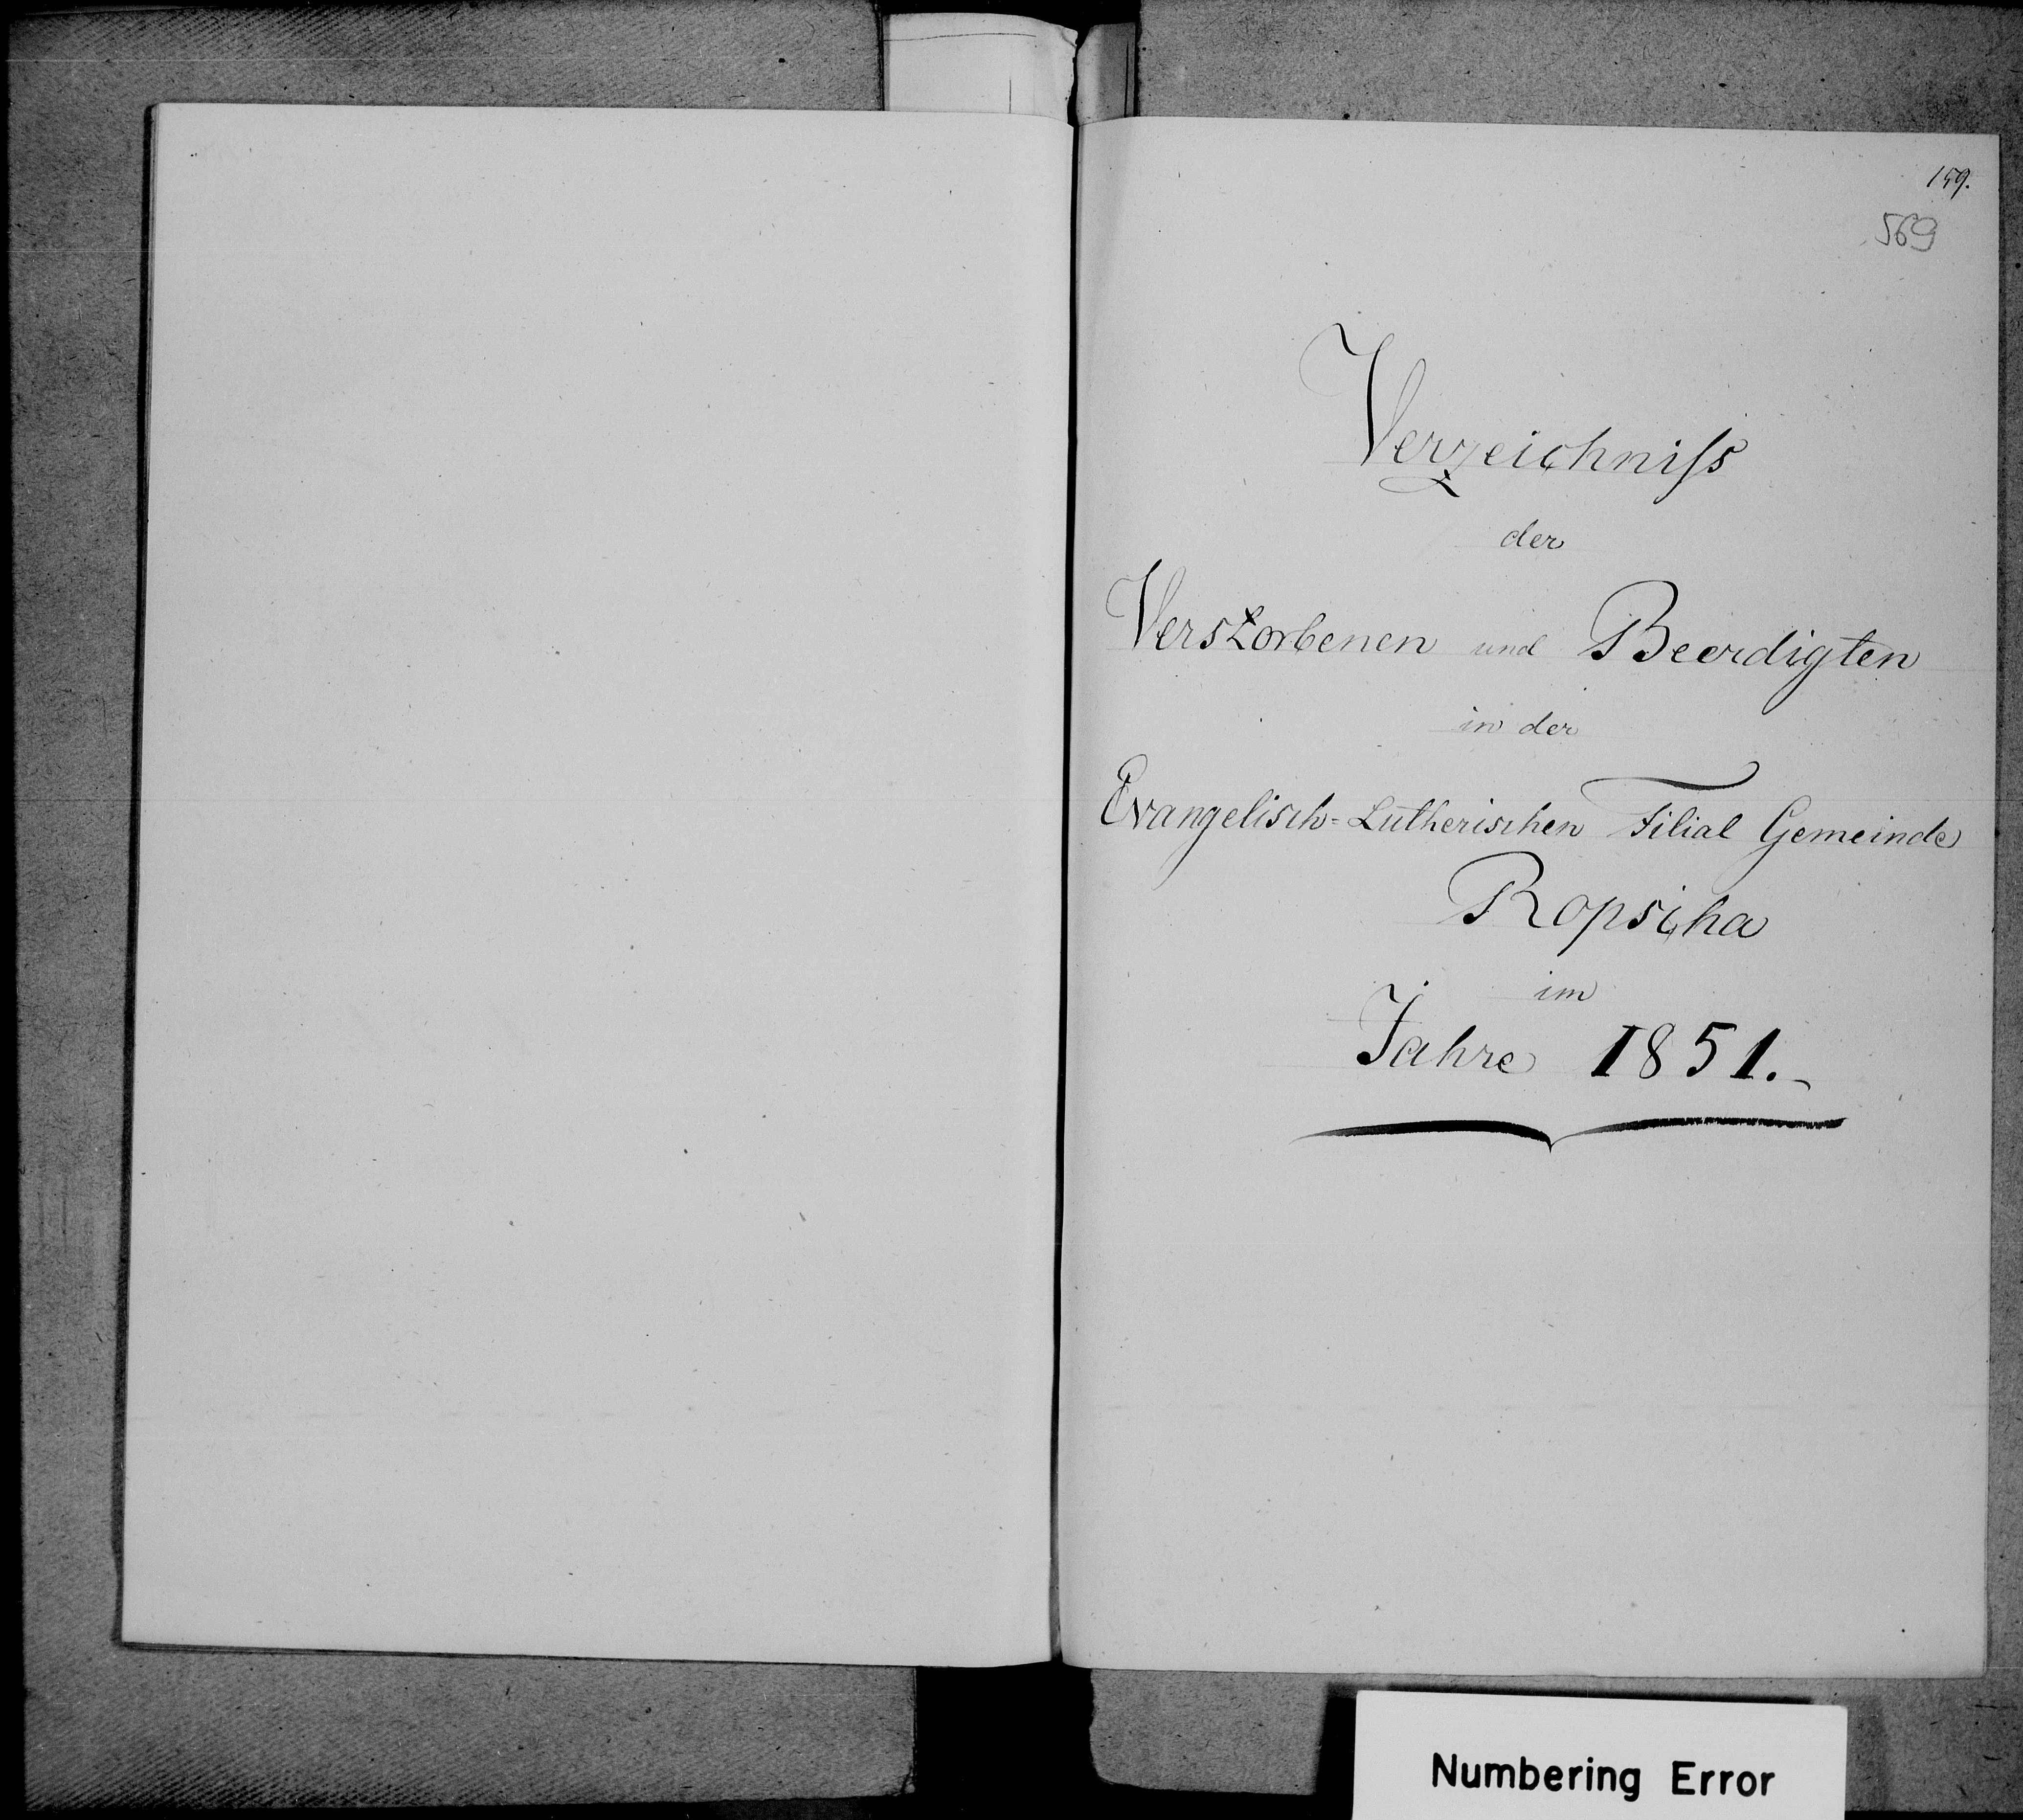 159.
569
Verzeichniſs
der
Verstorbenen und Beerdigten
in der
Evangelisch=Lutherischen Filial Gemeinde
Ropscha
im
Jahre 1851.
Numbering Error